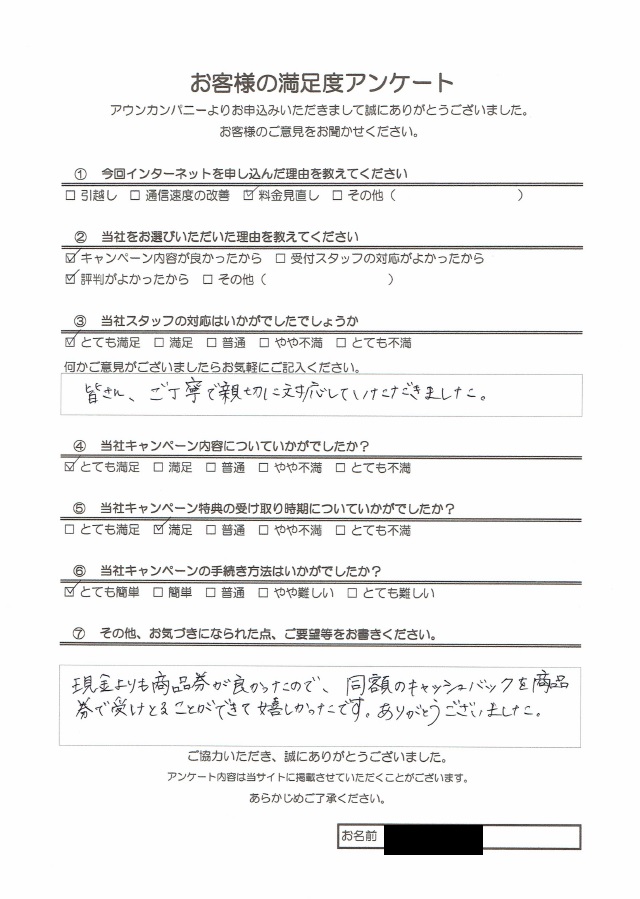 お客様の満足度アンケート
アウンカンパニーよりお申込みいただきまして誠にありがとうございました。
お客様のご意見をお聞かせください。
① 今回インターネットを申し込んだ理由を教えてください
□ 引越し □ 通信速度の改善 ☑ 料金見直し □ その他（ ）
② 当社をお選びいただいた理由を教えてください
☑ キャンペーン内容が良かったから □ 受付スタッフの対応がよかったから
☑ 評判がよかったから □ その他（ ）
③ 当社スタッフの対応はいかがでしたでしょうか
☑ とても満足 □ 満足 □ 普通 □ やや不満 □ とても不満
何かご意見がございましたらお気軽にご記入ください。
皆さん、ご丁寧で親切に対応していただきました。
④ 当社キャンペーン内容についていかがでしたか？
☑ とても満足 □ 満足 □ 普通 □ やや不満 □ とても不満
⑤ 当社キャンペーン特典の受け取り時期についていかがでしたか？
□ とても満足 ☑ 満足 □ 普通 □ やや不満 □ とても不満
⑥ 当社キャンペーンの手続き方法はいかがでしたか？
☑ とても簡単 □ 簡単 □ 普通 □ やや難しい □ とても難しい
⑦ その他、お気づきになられた点、ご要望等をお書きください。
現金よりも商品券が良かったので、同額のキャッシュバックを商品
券で受けとることができて嬉しかったです。ありがとうございました。
ご協力いただき、誠にありがとうございました。
アンケート内容は当サイトに掲載させていただくことがございます。
あらかじめご了承ください。
お名前